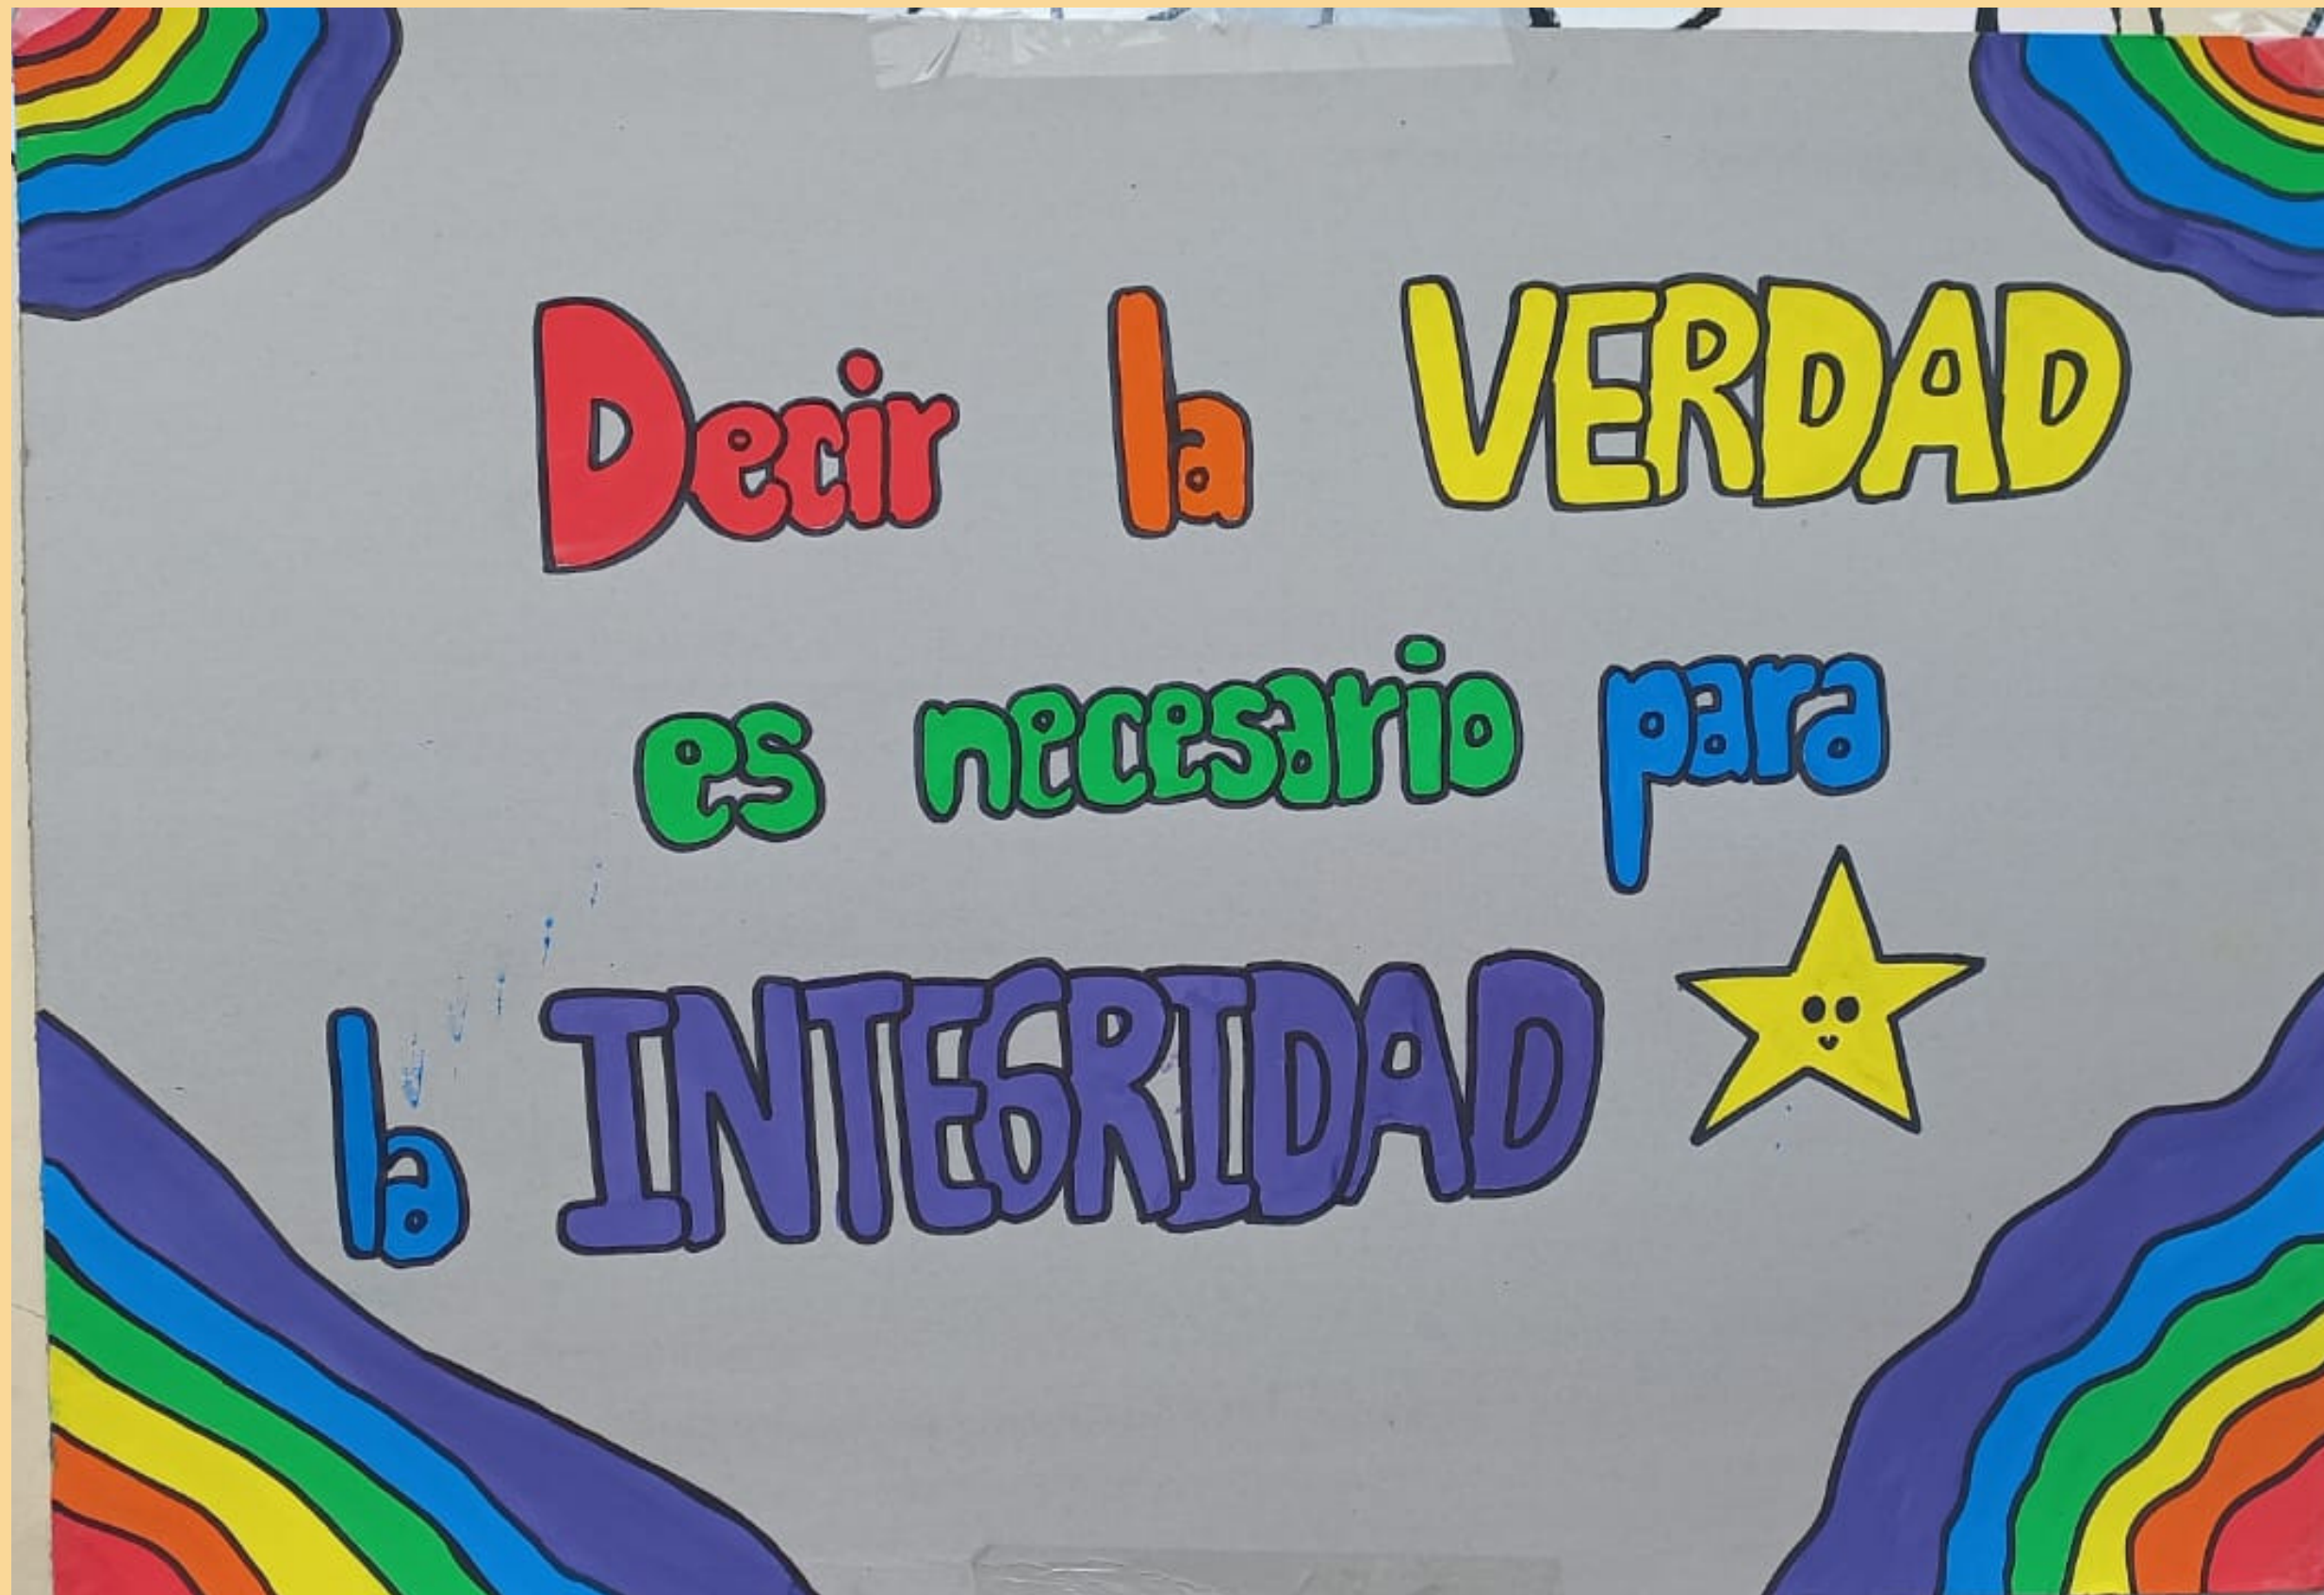 Decir la VERDAD
es necesario para
la INTEGRIDAD